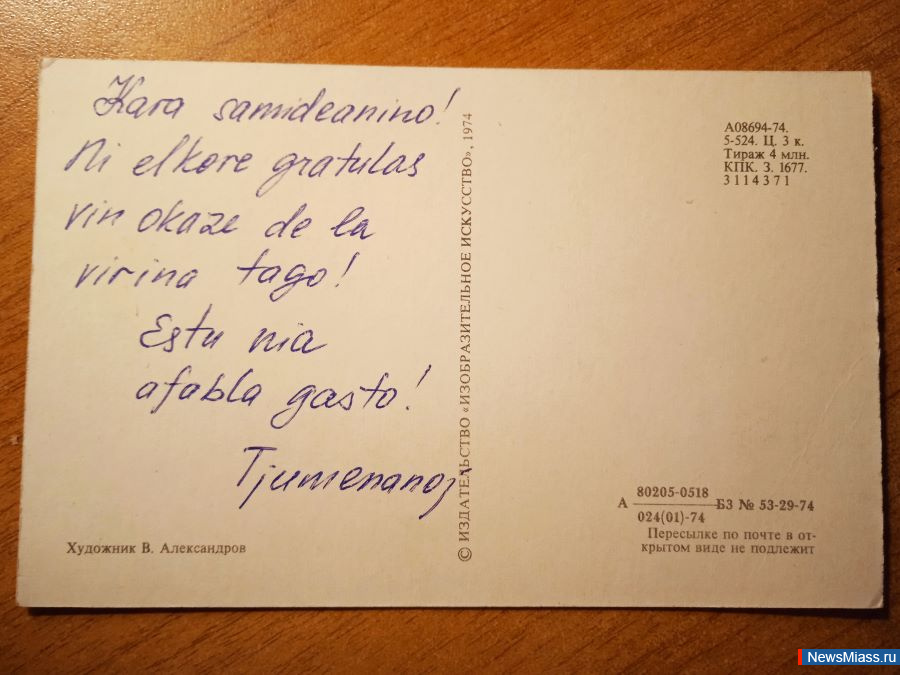 Kara samideanino!
Ni elkore gratulas
vin okaze de la
virina tago!
Estu nia
afabla gasto!
Tjumenanoj
Художник В. Александров
© ИЗДАТЕЛЬСТВО «ИЗОБРАЗИТЕЛЬНОЕ ИСКУССТВО», 1974
А08694-74.
5-524. Ц. 3 к.
Тираж 4 млн.
КПК. З. 1677.
3114371
А 80205-0518 БЗ № 53-29-74
024(01)-74
Пересылке по почте в от-
крытом виде не подлежит
NewsMiass.ru